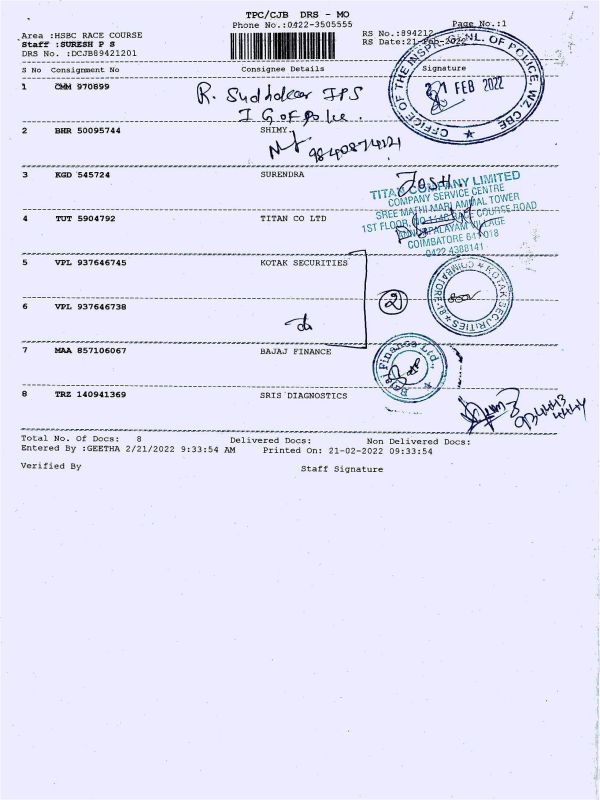 TPC/CJB DRS - MO
Phone No.:0422-3505555
Page No.:1
Area :HSBC RACE COURSE
RS No.:894212
Staff :SURESH P S
RS Date:21-Feb-2022
DRS No. :DCJB89421201
S No Consignment No Consignee Details Signature
OFFICE OF THE INSPR. GENL. OF POLICE, WZ, CBE
21 FEB 2022
1 CMM 970899 R. Sudhakar IPS
I G of police.
2 BHR 50095744 SHIMY
3 KGD 545724 SURENDRA
TITAN COMPANY LIMITED
COMPANY SERVICE CENTRE
SREE MATHI MARI AMMAL TOWER
1ST FLOOR, RACE COURSE ROAD
VILLAGE
COIMBATORE 641 018
0422 4388141
4 TUT 5904792 TITAN CO LTD
5 VPL 937646745 KOTAK SECURITIES
2
KOTAK SECURITIES COIMBATORE-18
6 VPL 937646738
7 MAA 857106067 BAJAJ FINANCE
Bajaj Finance Ltd.,
8 TRZ 140941369 SRIS DIAGNOSTICS
Total No. Of Docs: 8 Delivered Docs: Non Delivered Docs:
Entered By :GEETHA 2/21/2022 9:33:54 AM Printed On: 21-02-2022 09:33:54
Verified By Staff Signature